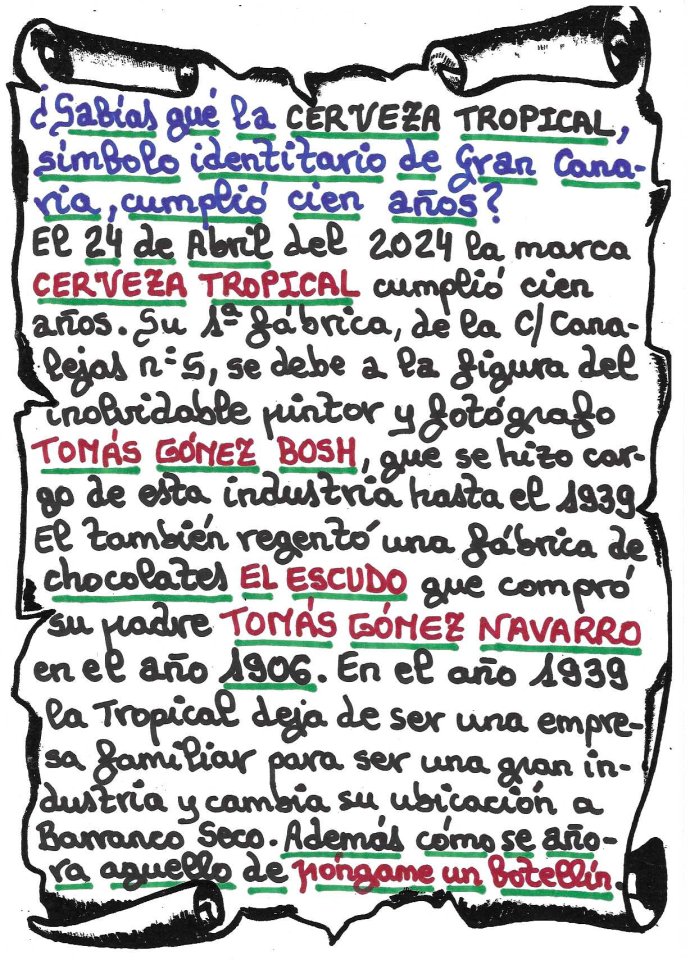 ¿Sabías qué la CERVEZA TROPICAL,
símbolo identitario de Gran Cana-
ria, cumplió cien años?
El 24 de Abril del 2024 la marca
CERVEZA TROPICAL cumplió cien
años. Su 1ª fábrica, de la C/Cana-
lejas nº 5, se debe a la figura del
inolvidable pintor y fotógrafo
TOMÁS GÓMEZ BOSH, que se hizo car-
go de esta industria hasta el 1939
El también regentó una fábrica de
chocolates EL ESCUDO que compró
su padre TOMÁS GÓMEZ NAVARRO
en el año 1906. En el año 1939
la Tropical deja de ser una empre-
sa familiar para ser una gran in-
dustria y cambia su ubicación a
Barranco Seco. Además cómo se año-
ra aquello de póngame un botellín.